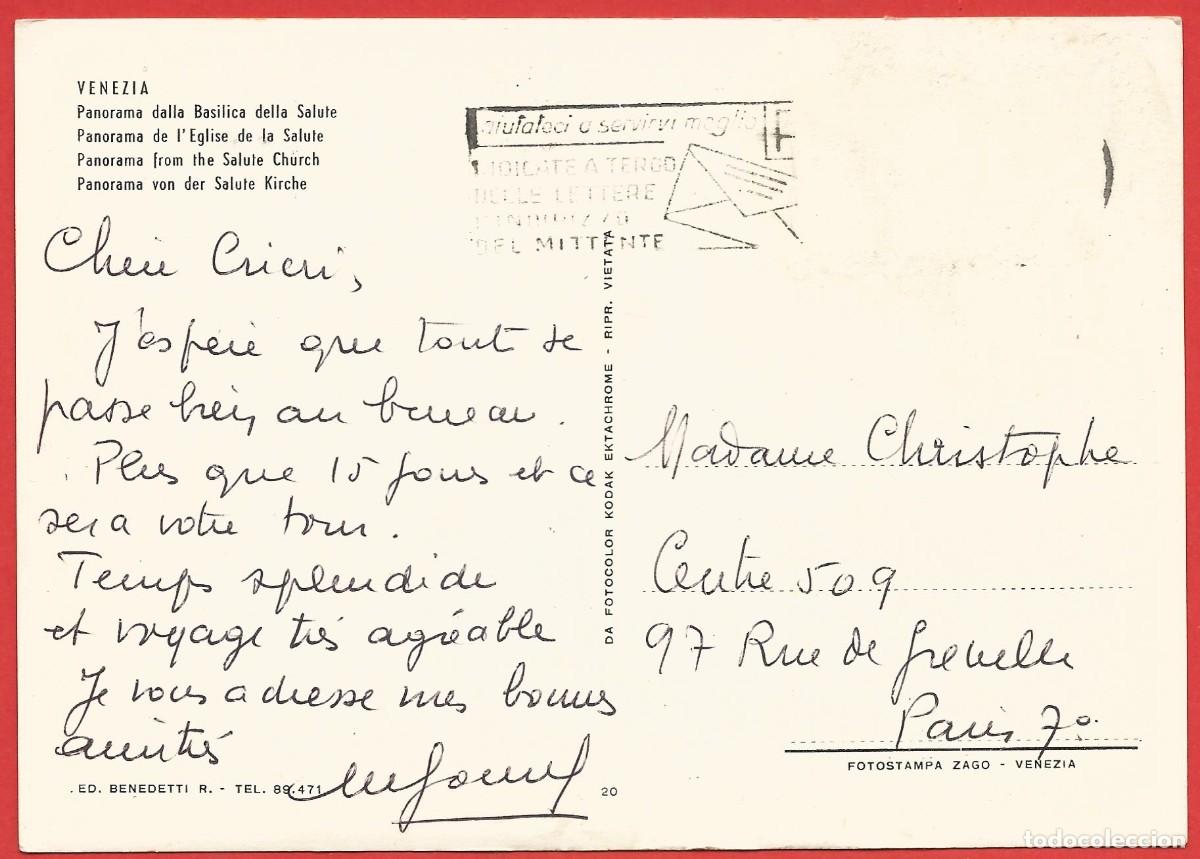 VENEZIA
Panorama dalla Basilica della Salute
Panorama de l'Eglise de la Salute
Panorama from the Salute Church
Panorama von der Salute Kirche
aiutateci a servirvi meglio
INDICATE A TERGO
DELLE LETTERE
L'INDIRIZZO
DEL MITTENTE
Chère Cricri,
J'espère que tout se
passe bien au bureau.
Plus que 15 jours et ce
sera votre tour.
Temps splendide
et voyage très agréable
Je vous adresse mes bonnes
amitiés
ED. BENEDETTI R. - TEL. 89.471
20
DA FOTOCOLOR KODAK EKTACHROME - RIPR. VIETATA
Madame Christophe
Centre 509
97 Rue de Grenelle
Paris 7e
FOTOSTAMPA ZAGO - VENEZIA
todocoleccion